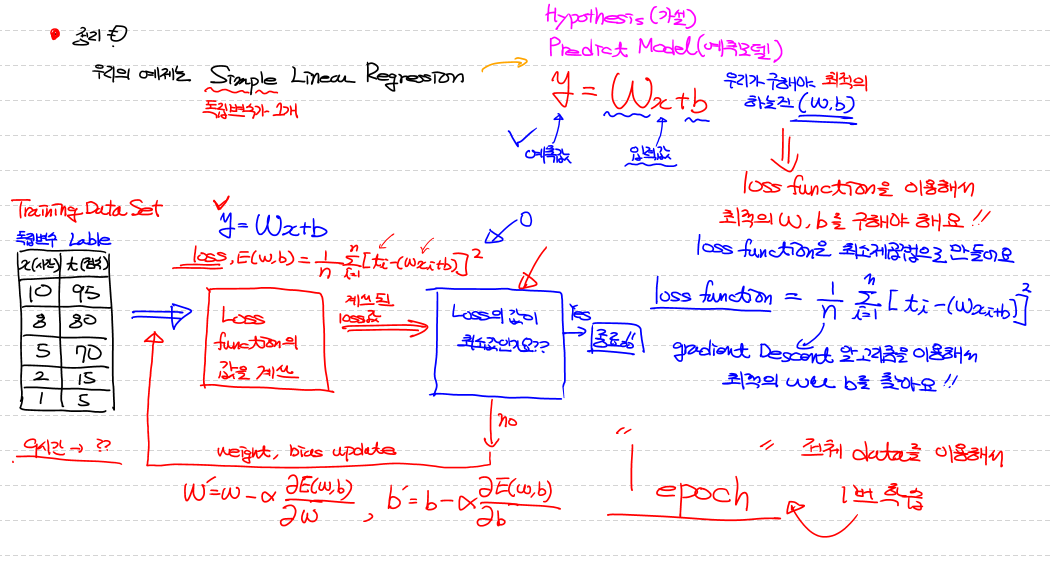 정리!
우리의 예제는 Simple Linear Regression
독립변수가 1개
Hypothesis(가설)
Predict Model(예측모델)
y = Wx+b
예측값
입력값
우리가 구해야 최적의
하는건 (W,b)
loss function을 이용해서
최적의 W, b를 구해야 해요!!
loss function은 최소제곱법으로 만들어요
loss function = 1/n ∑ⁿᵢ₌₁ [ti-(wxi+b)]²
gradient Descent 알고리즘을 이용해서
최적의 w와 b를 찾아요!!
Training Data Set
독립변수 Lable
x(시간) t(점수)
10 95
8 80
5 70
2 15
1 5
9시간 → ??
y = Wx+b
loss, E(w,b) = 1/n ∑ⁿᵢ₌₁ [ti-(wxi+b)]²
0
Loss
function의
값을 계산
계산된
loss값
Loss의 값이
최소값인가요??
Yes
종료!!
no
weight, bias update
W′=w-α ∂E(w,b)/∂w, b′=b-α ∂E(w,b)/∂b
"1 epoch"
전체 data를 이용해서
1번 학습